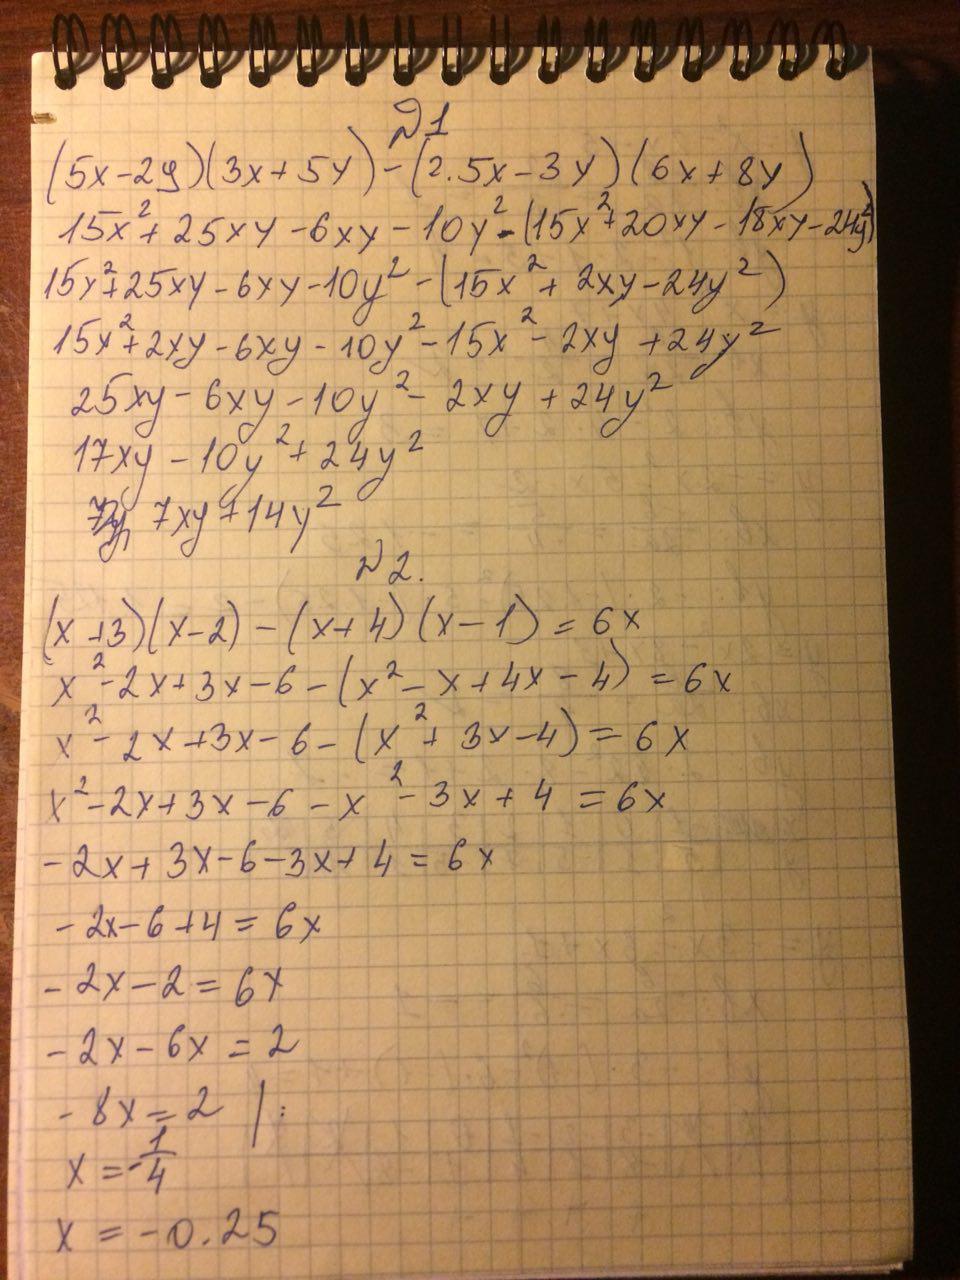 №1
(5x-2y)(3x+5y)-(2.5x-3y)(6x+8y)
15x²+25xy-6xy-10y²-(15x²+20xy-18xy-24y²)
15x²+25xy-6xy-10y²-(15x²+2xy-24y²)
15x²+2xy-6xy-10y²-15x²-2xy+24y²
25xy-6xy-10y²-2xy+24y²
17xy-10y²+24y²
7xy+14y²
№2.
(x+3)(x-2)-(x+4)(x-1)=6x
x²-2x+3x-6-(x²-x+4x-4)=6x
x²-2x+3x-6-(x²+3x-4)=6x
x²-2x+3x-6-x²-3x+4=6x
-2x+3x-6-3x+4=6x
-2x-6+4=6x
-2x-2=6x
-2x-6x=2
-8x=2 |:
x=-1/4
x=-0.25